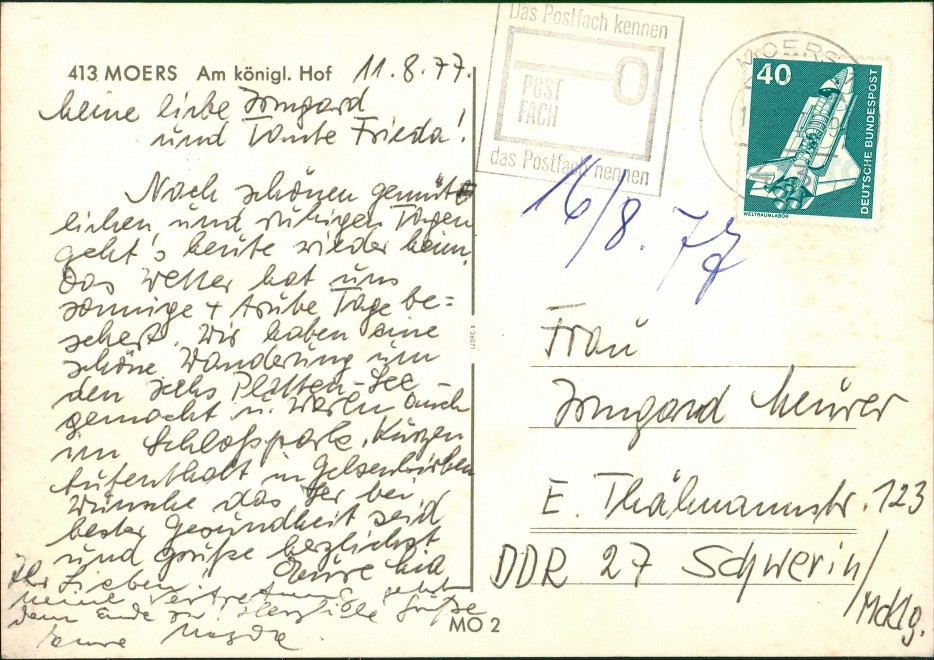 413 MOERS Am königl. Hof 11.8.77.
Meine liebe Irmgard
und Tante Frieda!
Nach schönen gemüt
lichen und ruhigen Tagen
geht's heute wieder heim.
Das Wetter hat uns
sonnige + trübe Tage be=
schert. Wir haben eine
schöne Wanderung um
den sechs Platten-See
gemacht u. waren auch
im Schloßpark. Kurzen
Aufenthalt in Gelsenkirchen
Wünsche das Ihr bei
bester Gesundheit seid
und grüße herzlichst
Eure Mia
Ihr Lieben!
meine Vertretung geht
dem Ende zu. Herzliche Grüße
Eure Magda
MO 2
Das Postfach kennen
POST
FACH
das Postfach nennen
MOERS
40
DEUTSCHE BUNDESPOST
WELTRAUMLABOR
16/8.77
Frau
Irmgard Meürer
E. Thälmannstr. 123
DDR 27 Schwerin/
Mcklg.